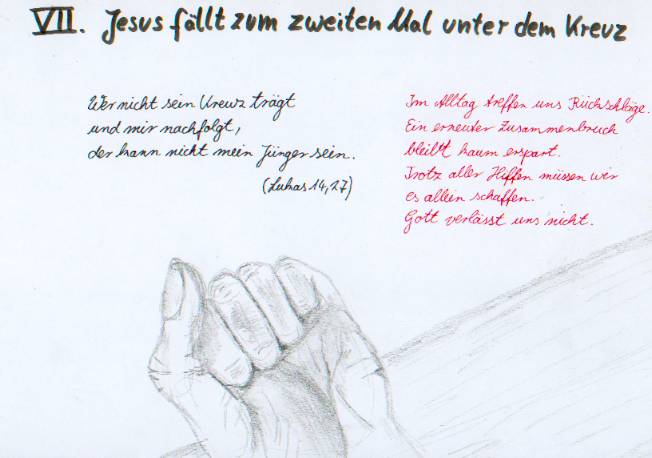 VII. Jesus fällt zum zweiten Mal unter dem Kreuz
Wer nicht sein Kreuz trägt
und mir nachfolgt,
der kann nicht mein Jünger sein.
(Lukas 14,27)
Im Alltag treffen uns Rückschläge.
Ein erneuter Zusammenbruch
bleibt kaum erspart.
Trotz aller Hilfen müssen wir
es allein schaffen.
Gott verlässt uns nicht.